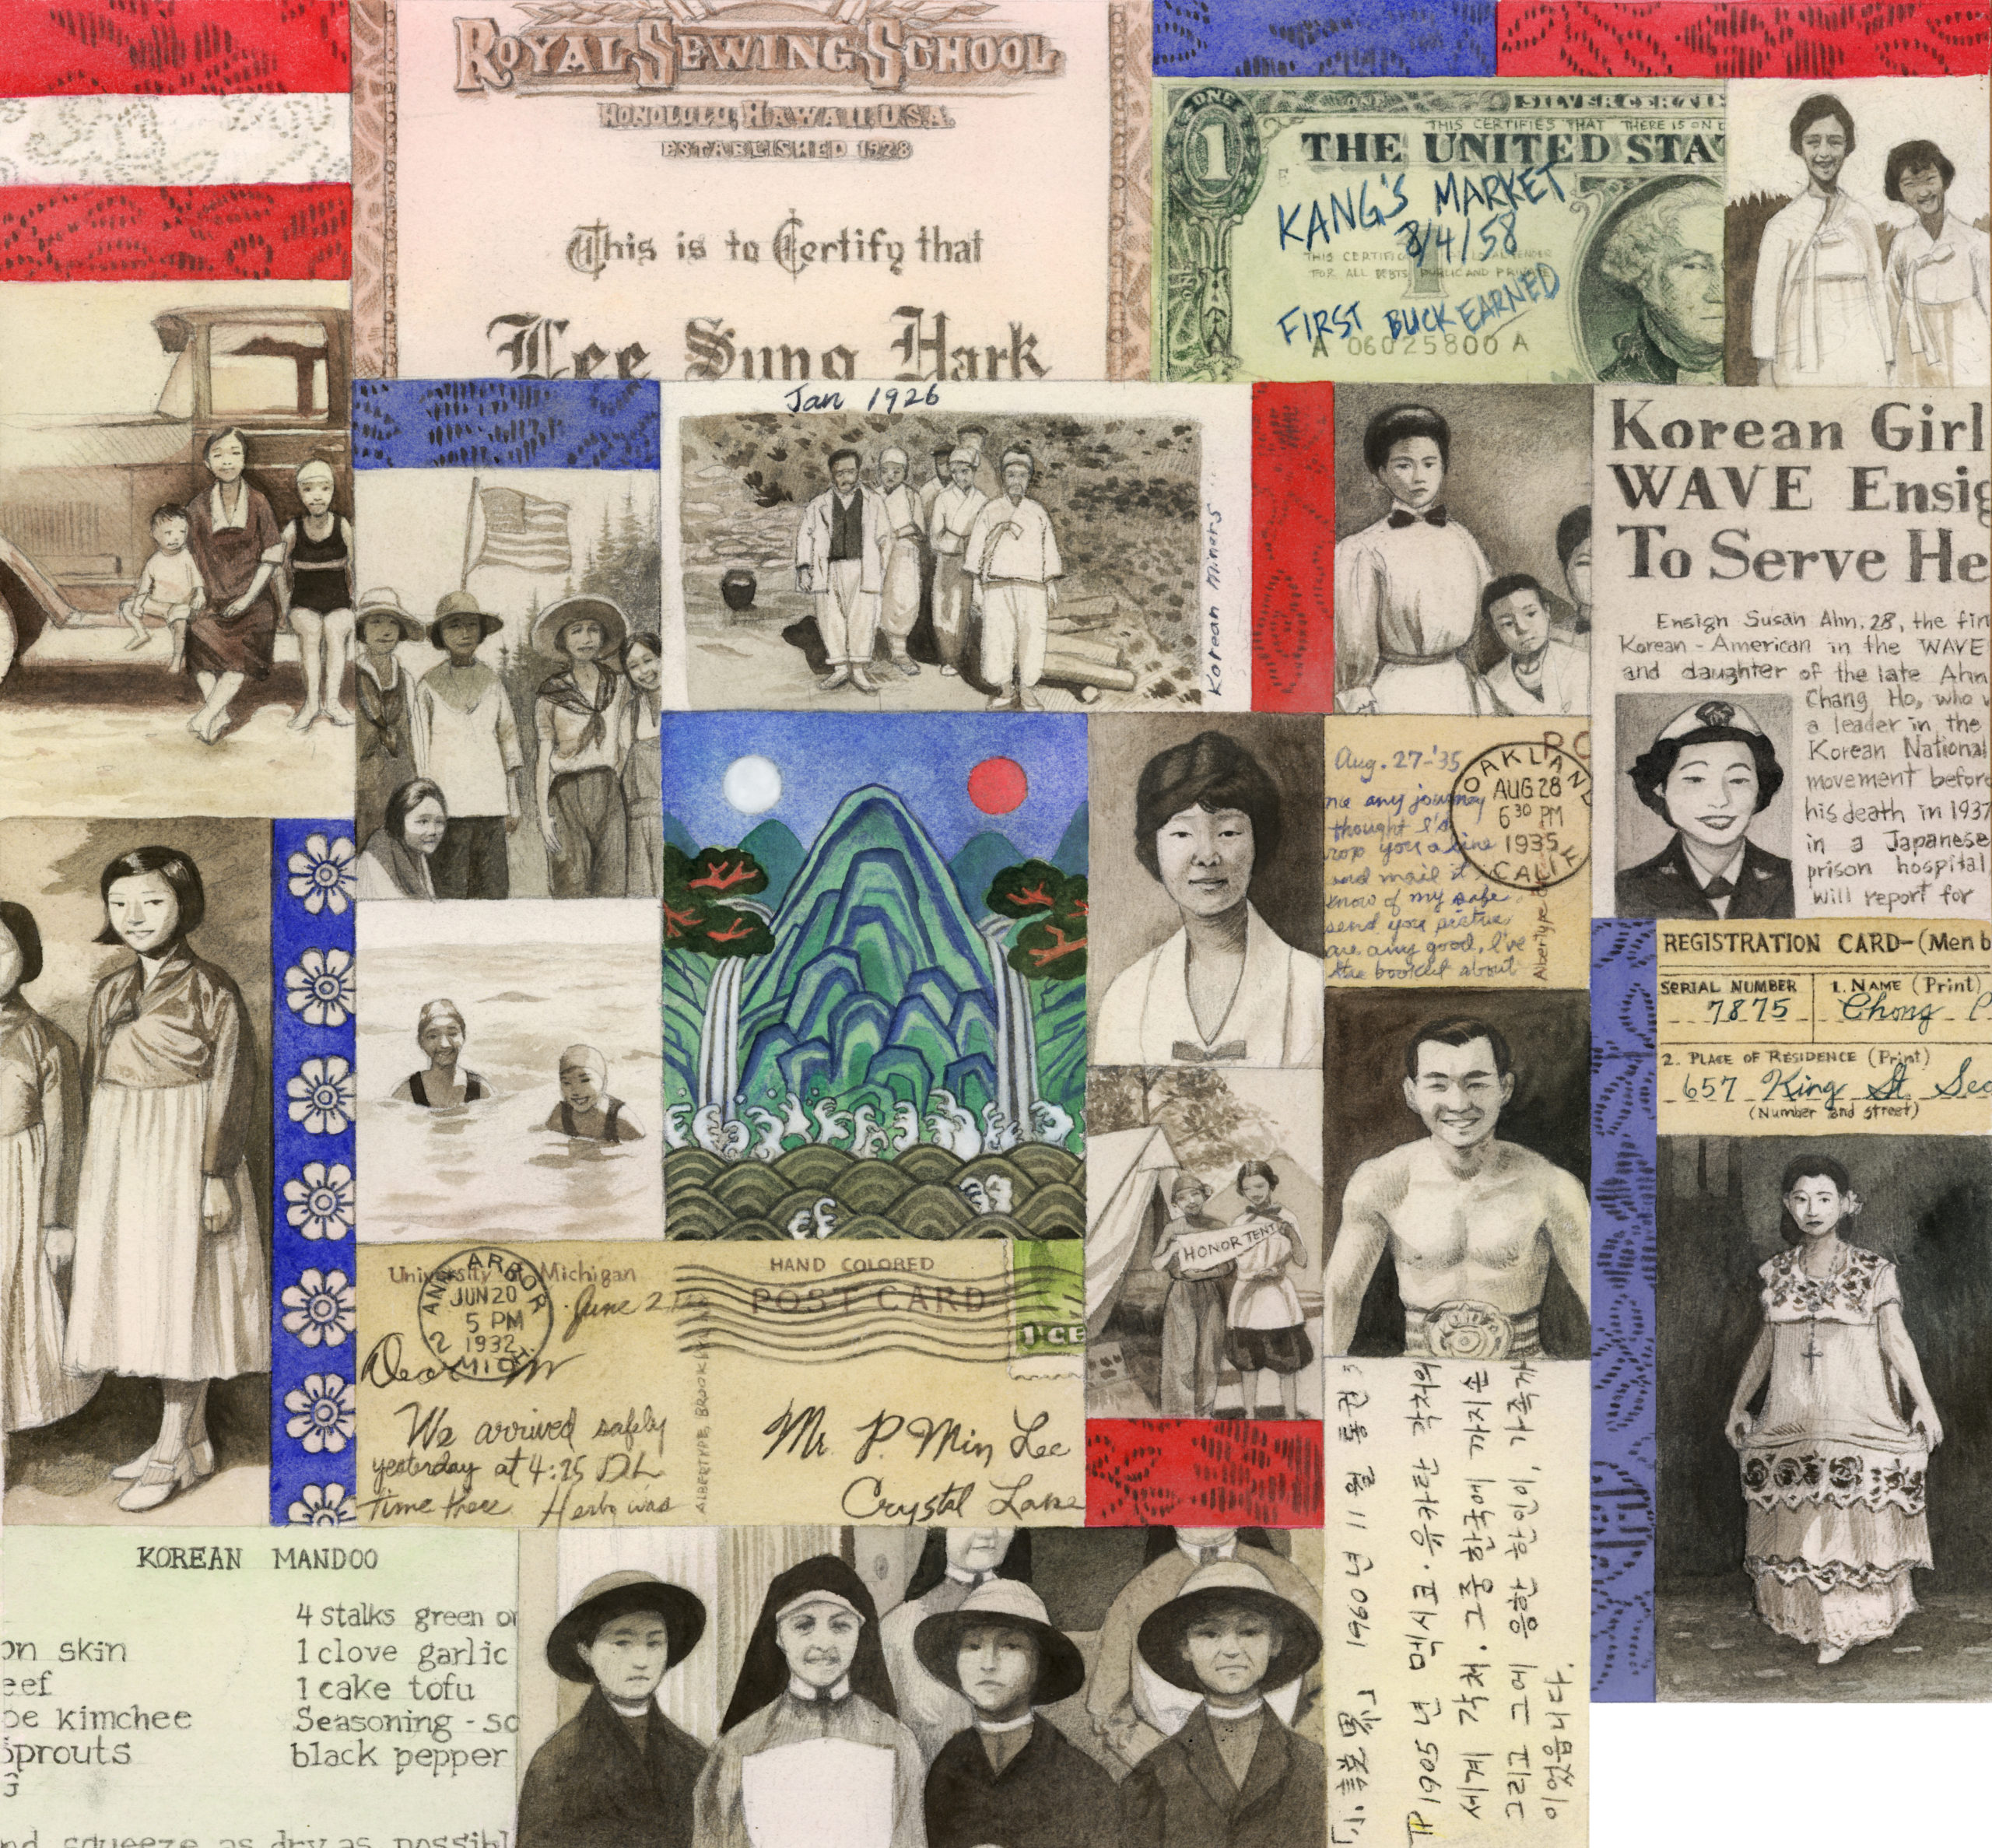 ROYAL SEWING SCHOOL
HONOLULU, HAWAII U.S.A.
ESTABLISHED 1928
This is to Certify that
Lee Sung Hark
ONE
1
ONE
SILVER CERTIF
THIS CERTIFIES THAT THERE IS ON D
THE UNITED STA
KANG'S MARKET
8/4/58
THIS CERTIFIC
LEGAL TENDER
FOR ALL DEBTS PUBLIC AND PRIVATE
1
FIRST BUCK EARNED
A 06025800 A
Jan 1926
Korean Miners
Korean Girl
WAVE Ensig
To Serve He
Ensign Susan Ahn, 28, the fir
Korean-American in the WAVE
and daughter of the late Ahn
Chang Ho, who w
a leader in the
Korean National
movement before
his death in 1937
in a Japanese
prison hospital,
will report for
Aug. 27-'35
any journey
thought I'd
you a line
and mail it
know of my safe
send you picture
are any good, I've
the booklet about
OAKLAND
AUG 28
6 30 PM
1935
CALIF
REGISTRATION CARD-(Men b
SERIAL NUMBER
7875
1. NAME (Print)
Chong P
2. PLACE OF RESIDENCE (Print)
657 King St Sea
(Number and street)
HONOR TENT
University of Michigan
ANN ARBOR
JUN 20
5 PM
2 1932
MICH
June 21
HAND COLORED
POST CARD
1 CE
ALBERTYPE, BROOKLYN
Dear
We arrived safely
yesterday at 4:25 D.L.
time there. Herb was
Mr. P. Min Lee
Crystal Lake
1960 년 11 월
1905 년 멕시코·유카탄 각지의
세계 각처. 그중 한국에 까지 손
그리고 그에 응한 한인이, 가족
이었읍니다.
KOREAN MANDOO
on skin
eef
pe kimchee
sprouts
4 stalks green on
1 clove garlic
1 cake tofu
Seasoning - so
black pepper
nd squeeze as dry as possibl